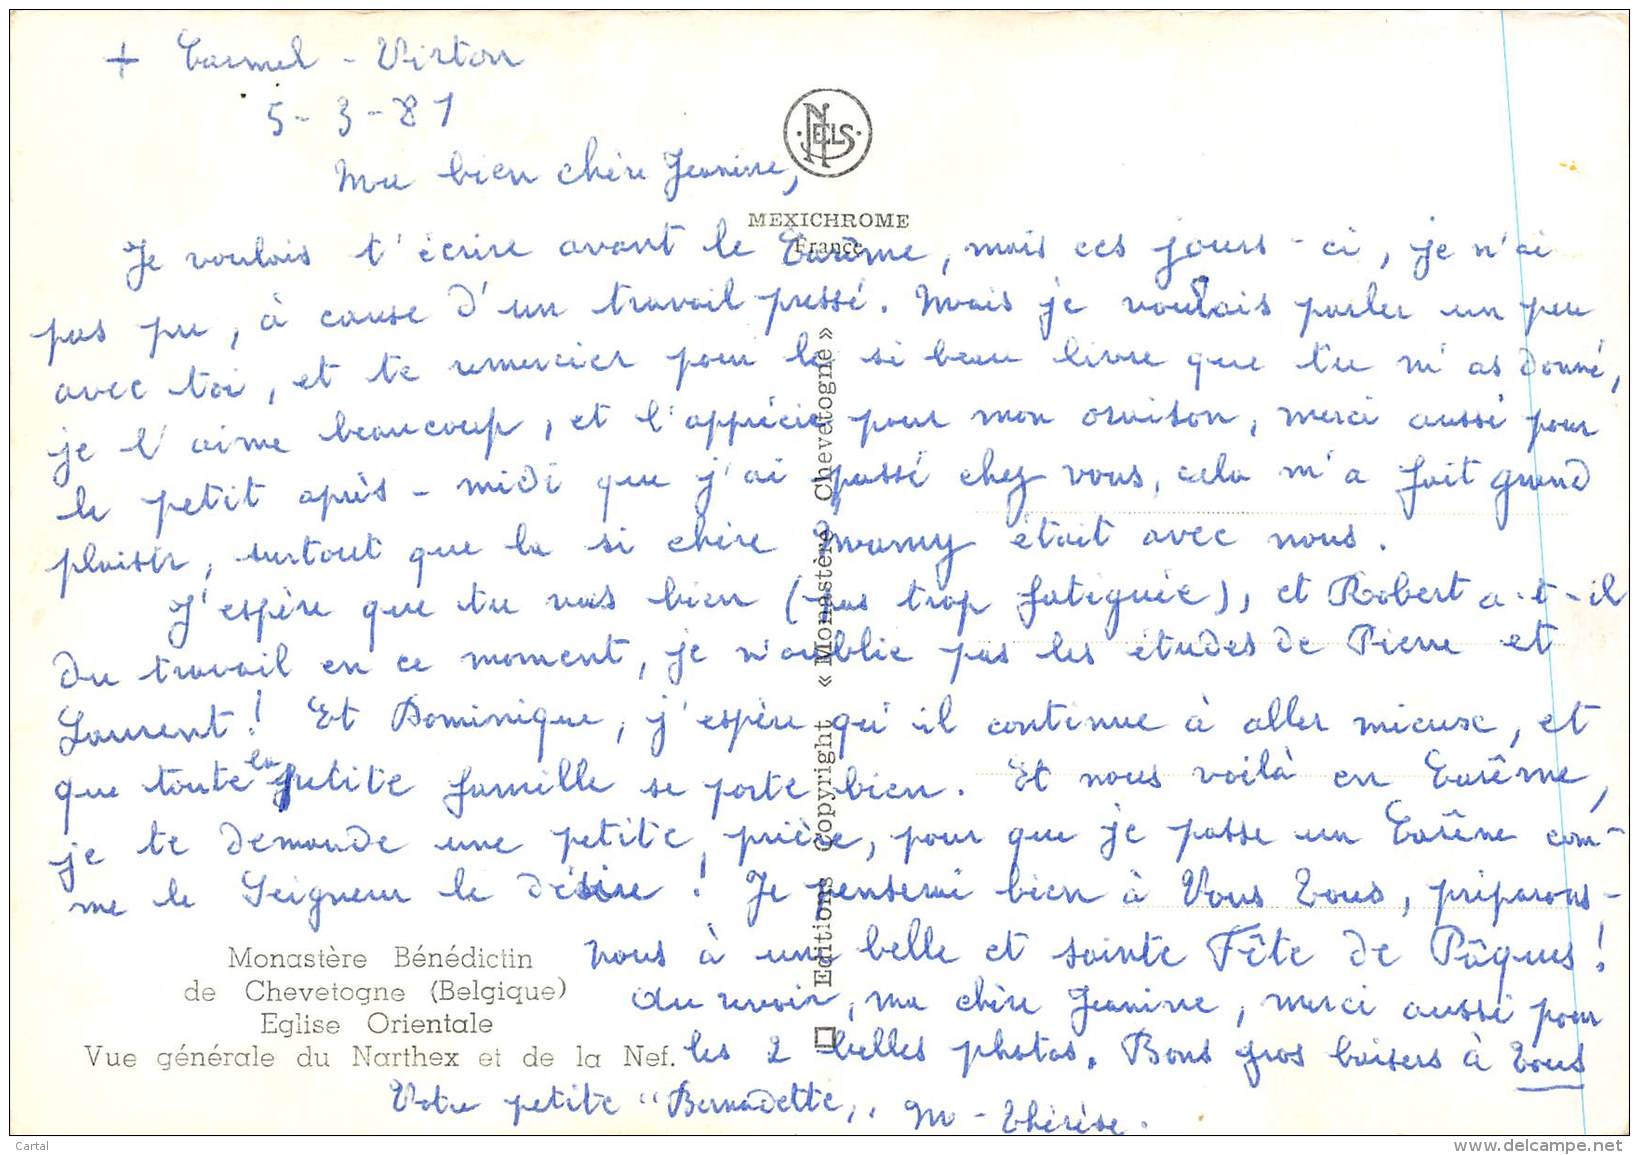 + Carmel - Virton
5-3-81
Ma bien chère Jeanine,
NELS
MEXICHROME
France
Je voulais t'écrire avant le Carême, mais ces jours-ci, je n'ai
pas pu, à cause d'un travail pressé. Mais je voulais parler un peu
avec toi, et te remercier pour le si beau livre que tu m'as donné,
je l'aime beaucoup, et l'apprécie pour mon oraison, merci aussi pour
le petit après-midi que j'ai passé chez vous, cela m'a fait grand
plaisir, surtout que la si chère Mamy était avec nous.
J'espère que tu vas bien (pas trop fatiguée), et Robert a-t-il
du travail en ce moment, je n'oublie pas les études de Pierre et
Laurent! Et Dominique, j'espère qu'il continue à aller mieux, et
que toute la petite famille se porte bien. Et nous voilà en Carême,
je te demande une petite prière, pour que je passe un Carême com-
me le Seigneur le désire! Je penserai bien à Vous Tous, préparons-
nous à une belle et sainte Fête de Pâques!
Au revoir, ma chère Jeanine, merci aussi pour
les 2 belles photos. Bons gros baisers à tous
Votre petite "Bernadette,, M-Thérèse.
Monastère Bénédictin
de Chevetogne (Belgique)
Eglise Orientale
Vue générale du Narthex et de la Nef.
Editions Copyright « Monastère Chevetogne »
Cartal
www.delcampe.net